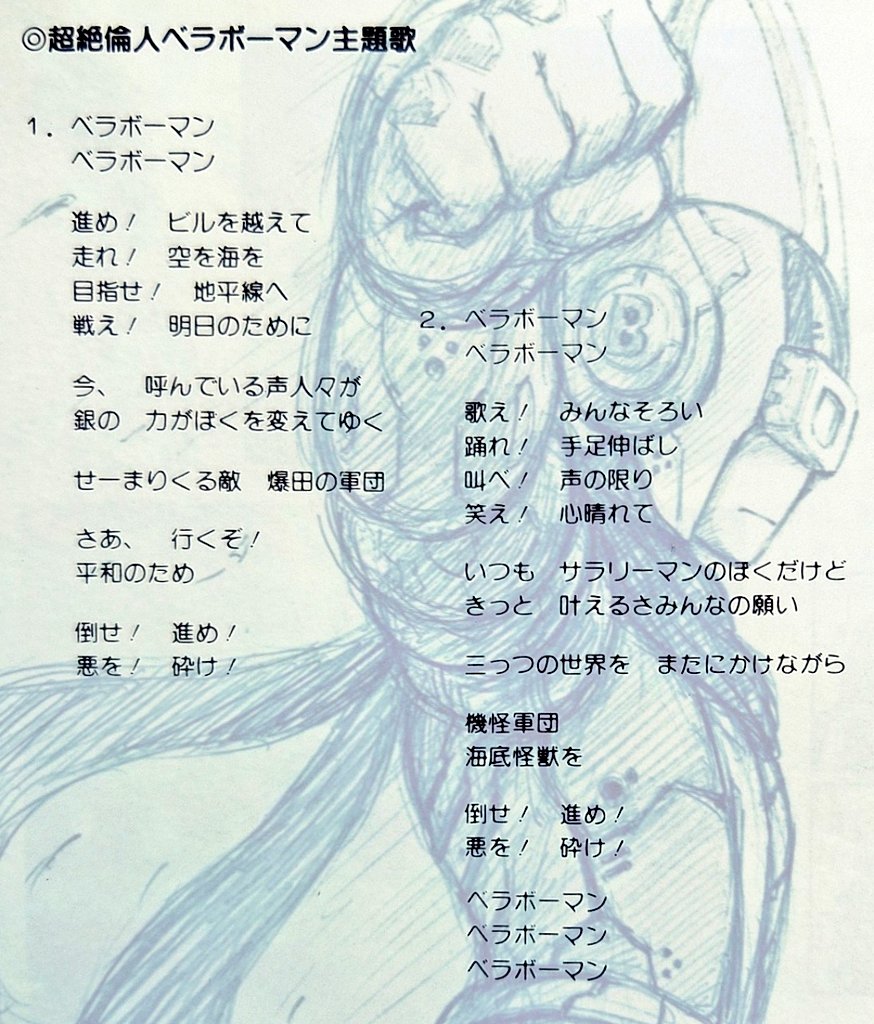 ◎超絶倫人ベラボーマン主題歌
1. ベラボーマン
ベラボーマン
進め! ビルを越えて
走れ! 空を海を
目指せ! 地平線へ
戦え! 明日のために
今、 呼んでいる声人々が
銀の 力がぼくを変えてゆく
せーまりくる敵 爆田の軍団
さあ、 行くぞ!
平和のため
倒せ! 進め!
悪を! 砕け!
2. ベラボーマン
ベラボーマン
歌え! みんなそろい
踊れ! 手足伸ばし
叫べ! 声の限り
笑え! 心晴れて
いつも サラリーマンのぼくだけど
きっと 叶えるさみんなの願い
三っつの世界を またにかけながら
機怪軍団
海底怪獣を
倒せ! 進め!
悪を! 砕け!
ベラボーマン
ベラボーマン
ベラボーマン
B